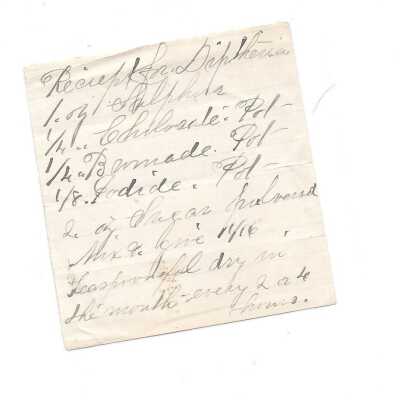 Reciept for Diptheria
1. oz Sulphur
1/4 .. Chlorate. Pot -
1/4 .. Bromade. Pot
1/8 . Iodide. Pot -
2. oz Sugar Pulverised
Mix & Give 1/16
Teaspoonful dry in
the mouth - every 2 a 4
hours.